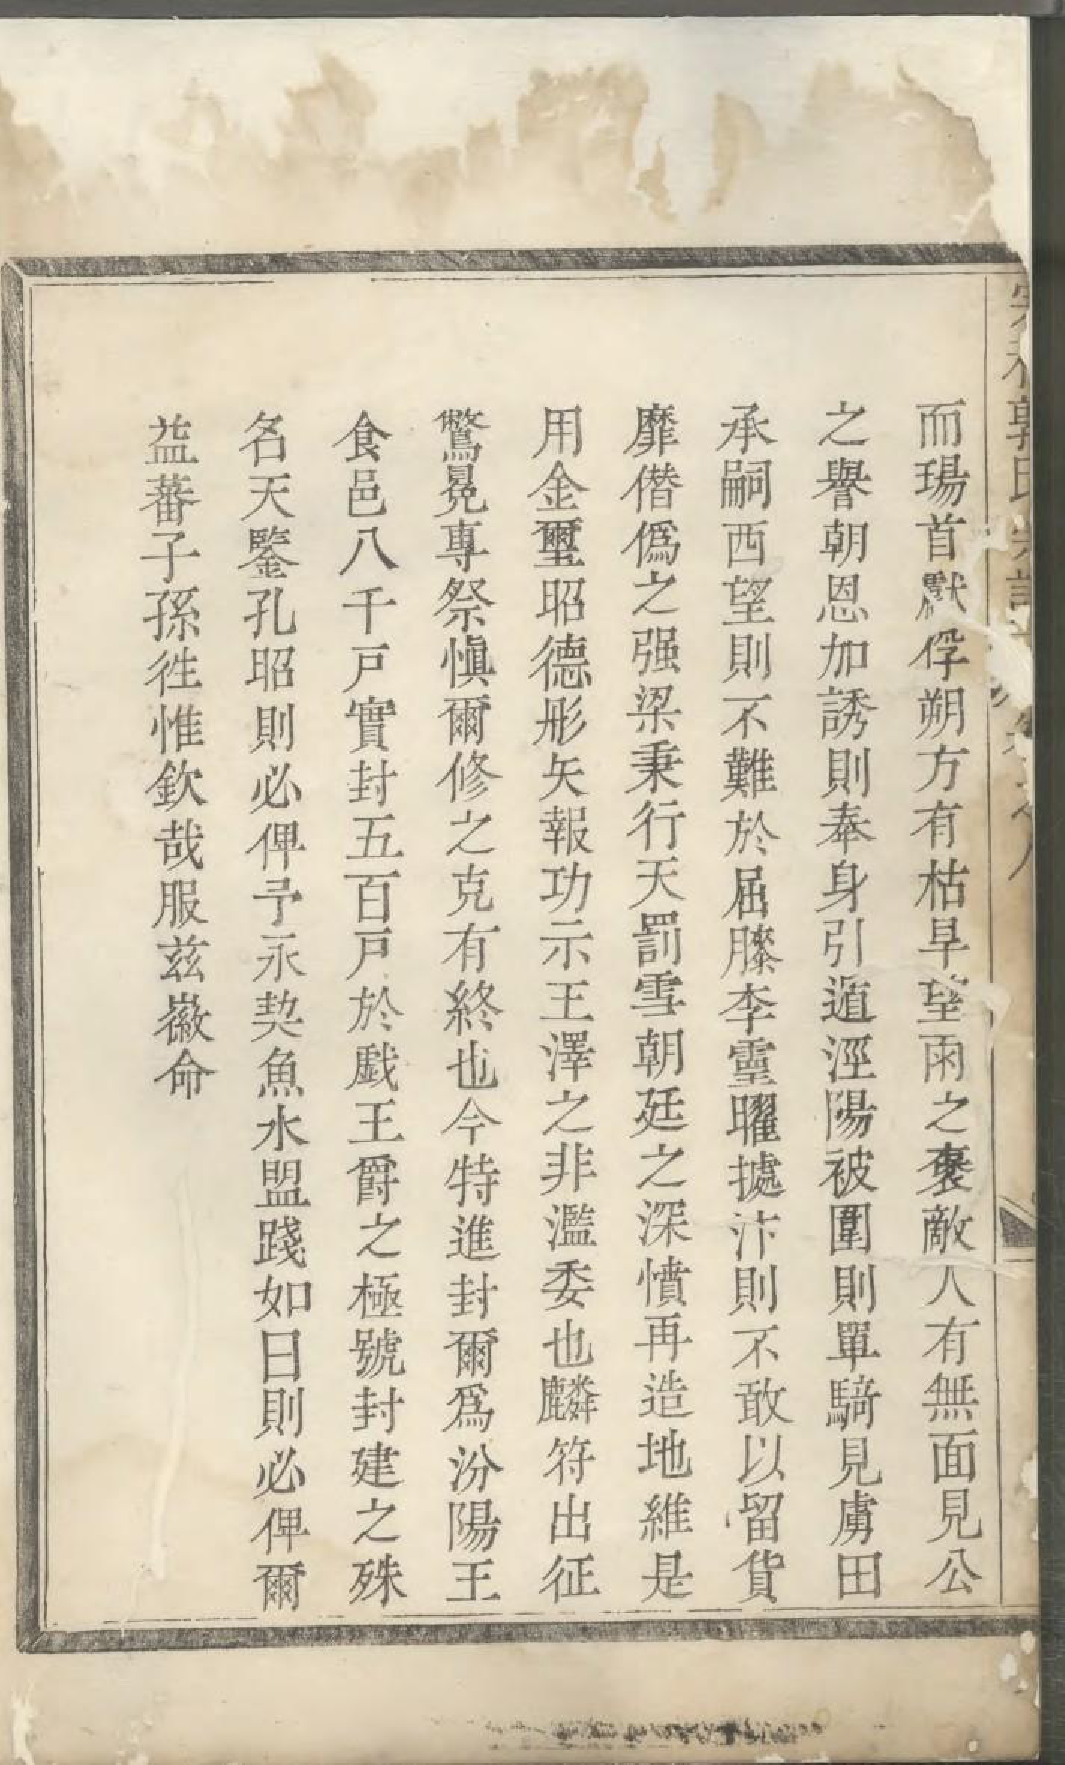 郭氏宗譜
而瑒首獻俘朔方有枯旱望雨之褒敵人有無面見公
之譽朝恩加誘則奉身引遁涇陽被圍則單騎見虜田
承嗣西望則不難於屈膝李靈曜據汴則不敢以留貨
靡僭僞之强梁秉行天罰雪朝廷之深憤再造地維是
用金璽昭德彤矢報功示王澤之非濫委也麟符出征
鷩冕專祭愼爾修之克有終也今特進封爾爲汾陽王
食邑八千戸實封五百戸於戱王爵之極號封建之殊
名天鑒孔昭則必俾予永契魚水盟踐如日則必俾爾
益蕃子孫徃惟欽哉服茲徽命